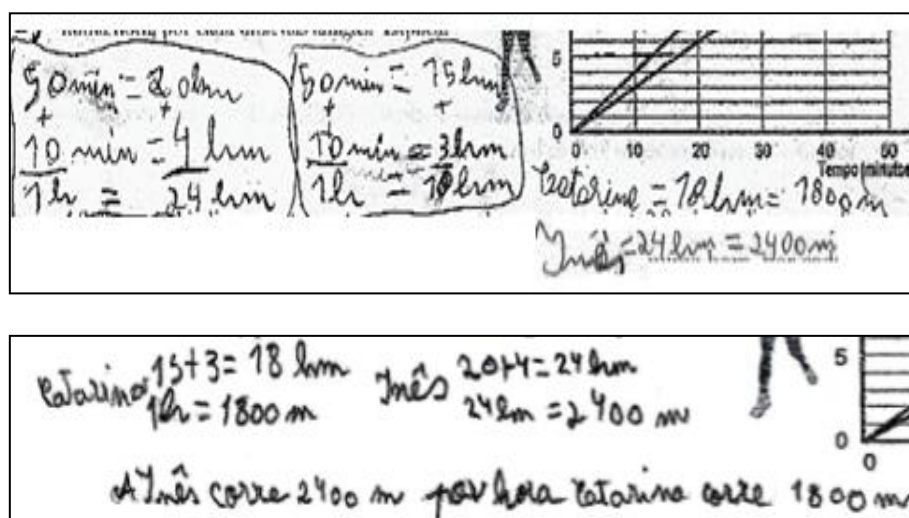 50 min = 20 hm
+
10 min = 4 hm
1h = 24 hm
50 min = 15 hm
+ +
10 min = 3 hm
1h = 18 hm
5
0
0 10 20 30 40 50 60
Tempo (minutos
Catarina = 18 hm = 1800 m
Inês = 24 hm = 2400 m
Catarina 15+3= 18 hm
1h = 1800 m
Inês 20+4=24 hm
24hm = 2400 m
5
0
0
A Inês corre 2400 m por hora Catarina corre 1800 m